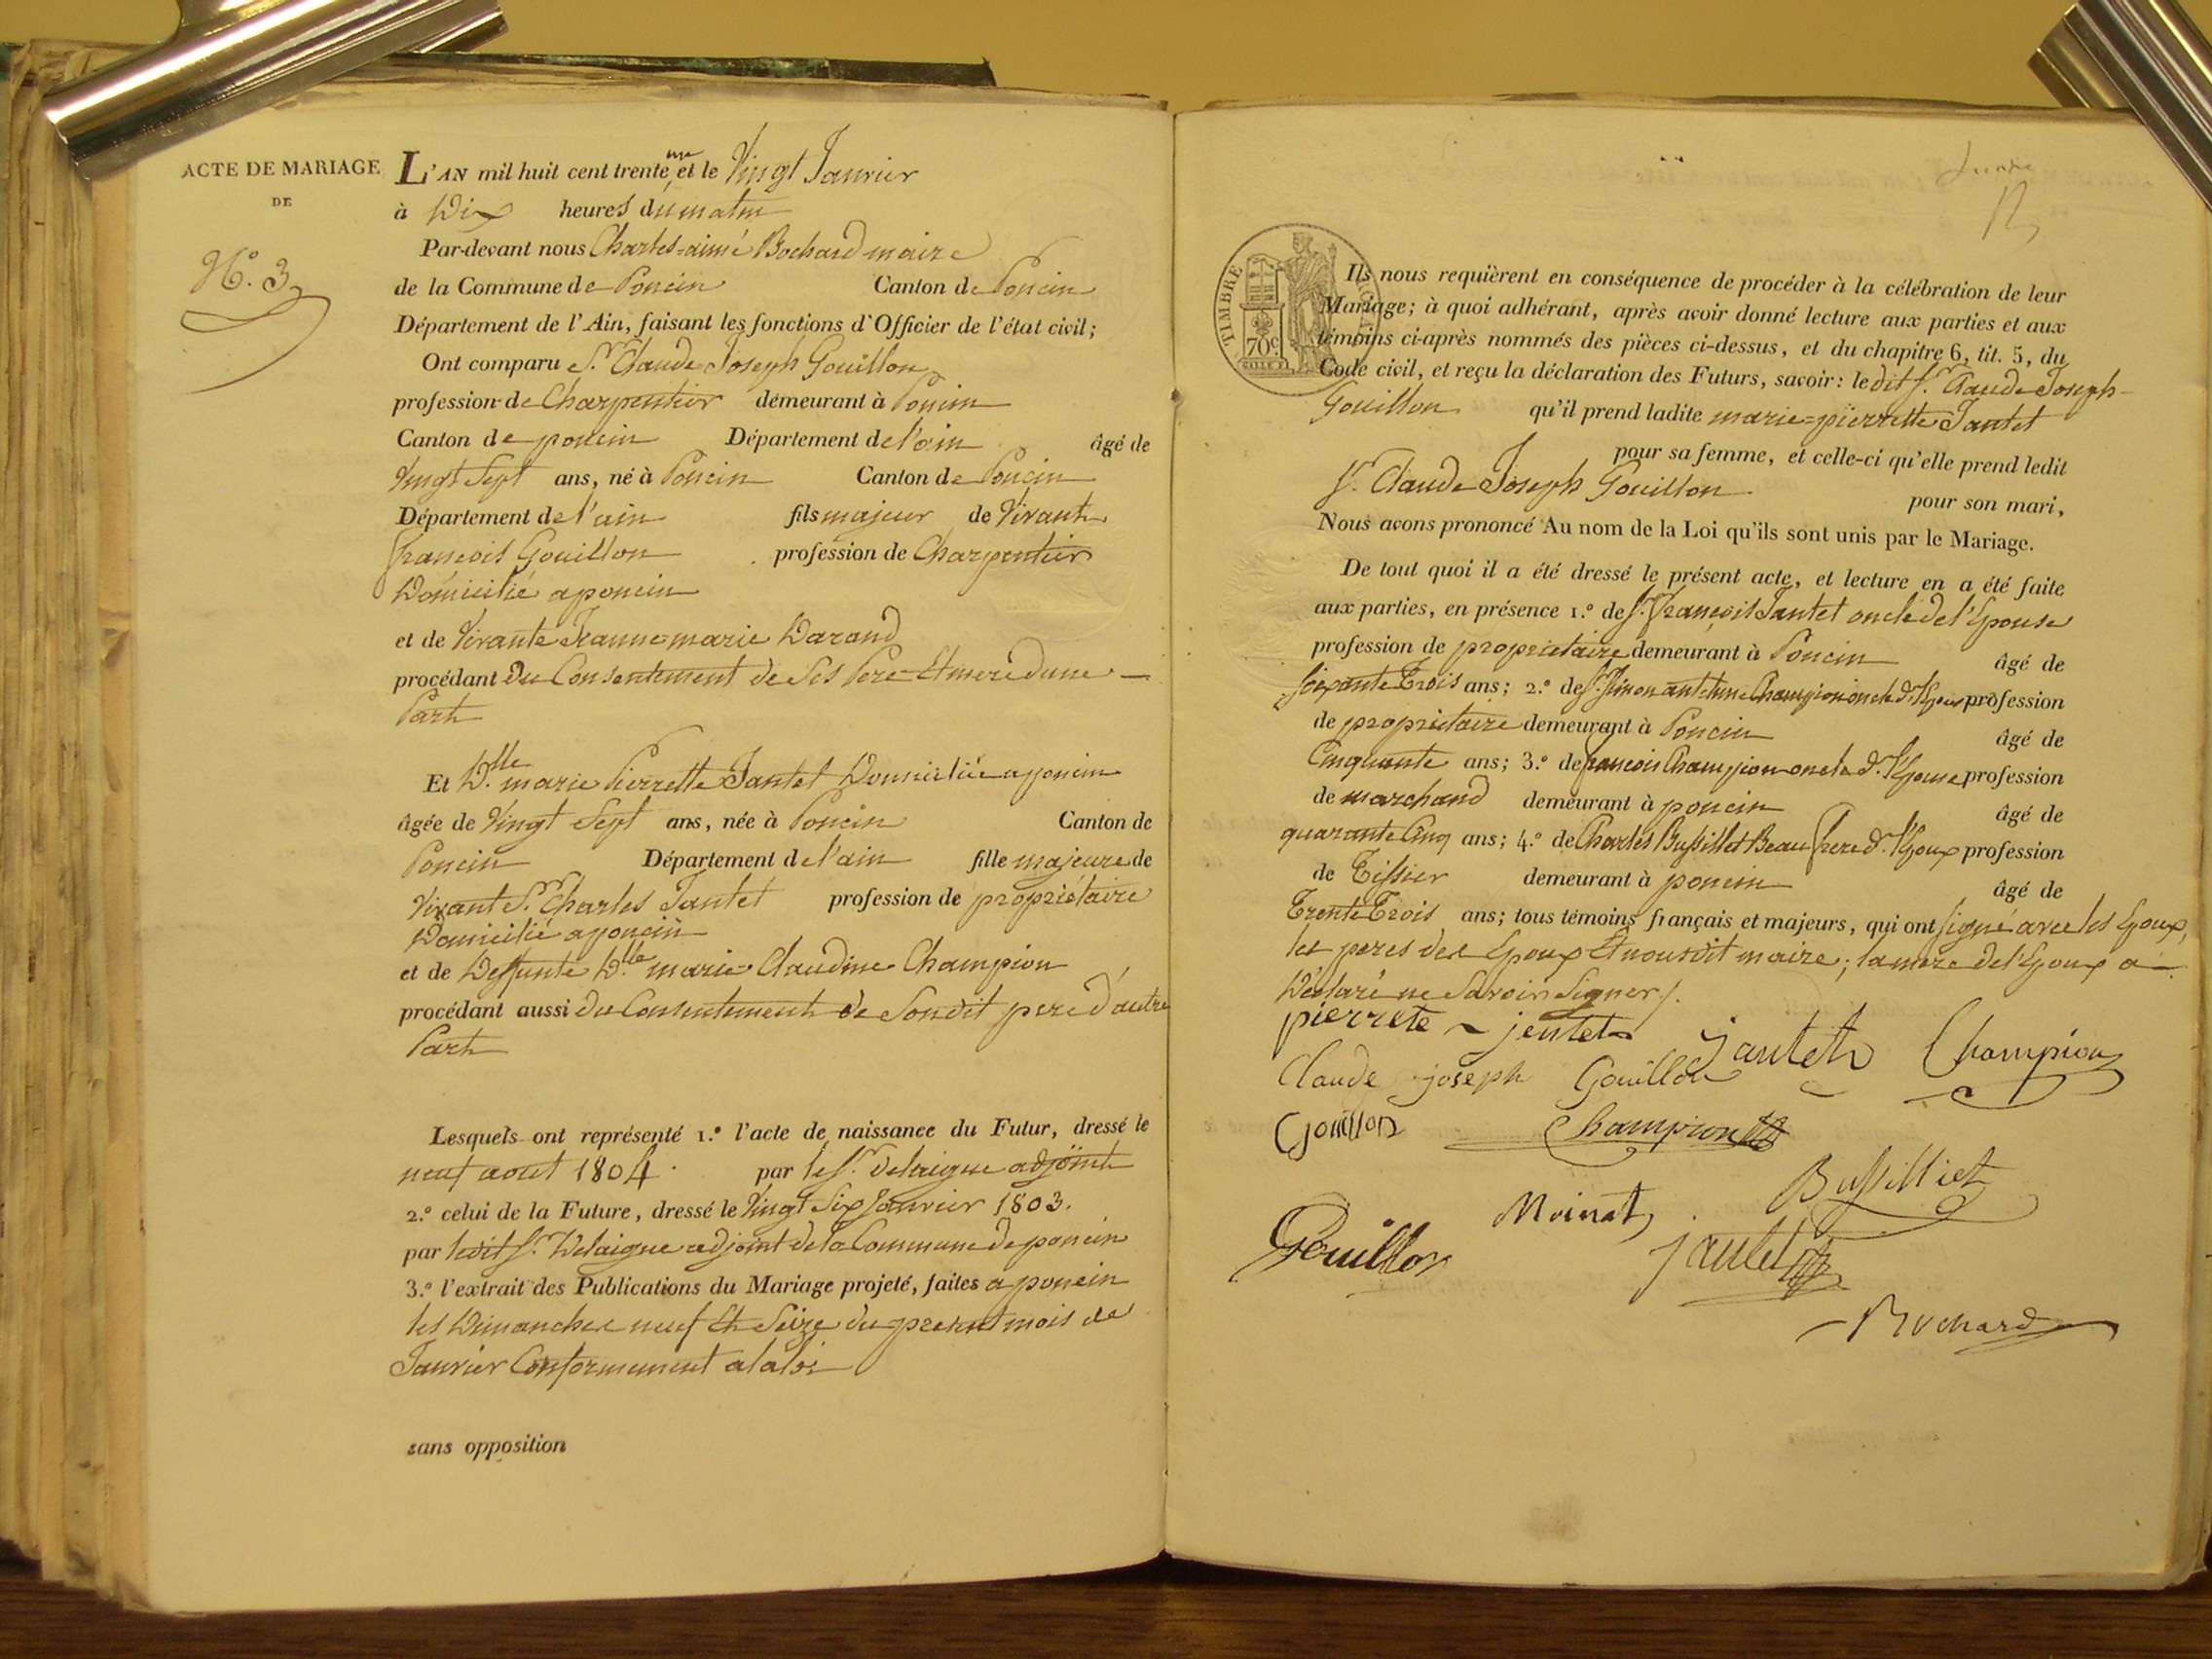 ACTE DE MARIAGE
DE
N.º 3
L'AN mil huit cent trente une et le Vingt Janvier
à Dix heures du matin
Par-devant nous Charles-aimé Bochard maire
de la Commune de Poncin Canton de Poncin
Département de l'Ain, faisant les fonctions d'Officier de l'état civil;
Ont comparu S.r Claude Joseph Gouillon
profession de Charpentier demeurant à Poncin
Canton de poncin Département de l'ain âgé de
Vingt Sept ans, né à Poncin Canton de Poncin
Département de l'ain fils majeur de Vivant
françois Gouillon profession de Charpentier
Domicilié a poncin
et de Vivante Jeanne-marie Darand
procédant du Consentement de Ses Pere Et mere d'une
Part
Et D.lle marie Pierrette Jantet Domiciliée a poncin
âgée de Vingt Sept ans, née à Poncin Canton de
Poncin Département de l'ain fille majeure de
Vivant S.r Charles Jantet profession de propriétaire
Domicilié a poncin
et de Deffunte D.lle marie Claudine Champion
procédant aussi du Consentement de Son dit pere d'autre
Part
Lesquels ont représenté 1.º l'acte de naissance du Futur, dressé le
neuf aout 1804 par le S.r Delaigue adjoint
2.º celui de la Future, dressé le Vingt Six Janvier 1803.
par ledit S.r Delaigue adjoint de la Commune de poncin
3.º l'extrait des Publications du Mariage projeté, faites a poncin
les Dimanches neuf Et Seize du present mois de
Janvier Conformement a la loi
sans opposition
TIMBRE
70c
Ils nous requièrent en conséquence de procéder à la célébration de leur
Mariage; à quoi adhérant, après avoir donné lecture aux parties et aux
témoins ci-après nommés des pièces ci-dessus, et du chapitre 6, tit. 5, du
Code civil, et reçu la déclaration des Futurs, savoir: le dit S.r Claude Joseph
Gouillon qu'il prend ladite marie=pierrette Jantet
pour sa femme, et celle-ci qu'elle prend ledit
S.r Claude Joseph Gouillon pour son mari,
Nous avons prononcé Au nom de la Loi qu'ils sont unis par le Mariage.
De tout quoi il a été dressé le présent acte, et lecture en a été faite
aux parties, en présence 1.º de S.r François Jantet oncle de l'Epouse
profession de propriétaire demeurant à Poncin âgé de
Soixante Trois ans; 2.º de S.r Simon antelme Champion oncle d. l'Epouse profession
de propriétaire demeurant à Poncin âgé de
Cinquante ans; 3.º de françois Champion oncle d. l'Epouse profession
de marchand demeurant à poncin âgé de
quarante Cinq ans; 4.º de Charles Bussillet Beau frere d. l'Epoux profession
de Tissier demeurant à poncin âgé de
Trente Trois ans; tous témoins français et majeurs, qui ont signé avec les Epoux,
les peres des Epoux Et nous dit maire; la mere de l'Epoux a
Déclaré ne Savoir Signer /.
pierrete jentet Jantet Champion
Claude joseph Gouillon
Gouillon Champion
Moinat Bussilliet
Gouillon Jantet
Bochard